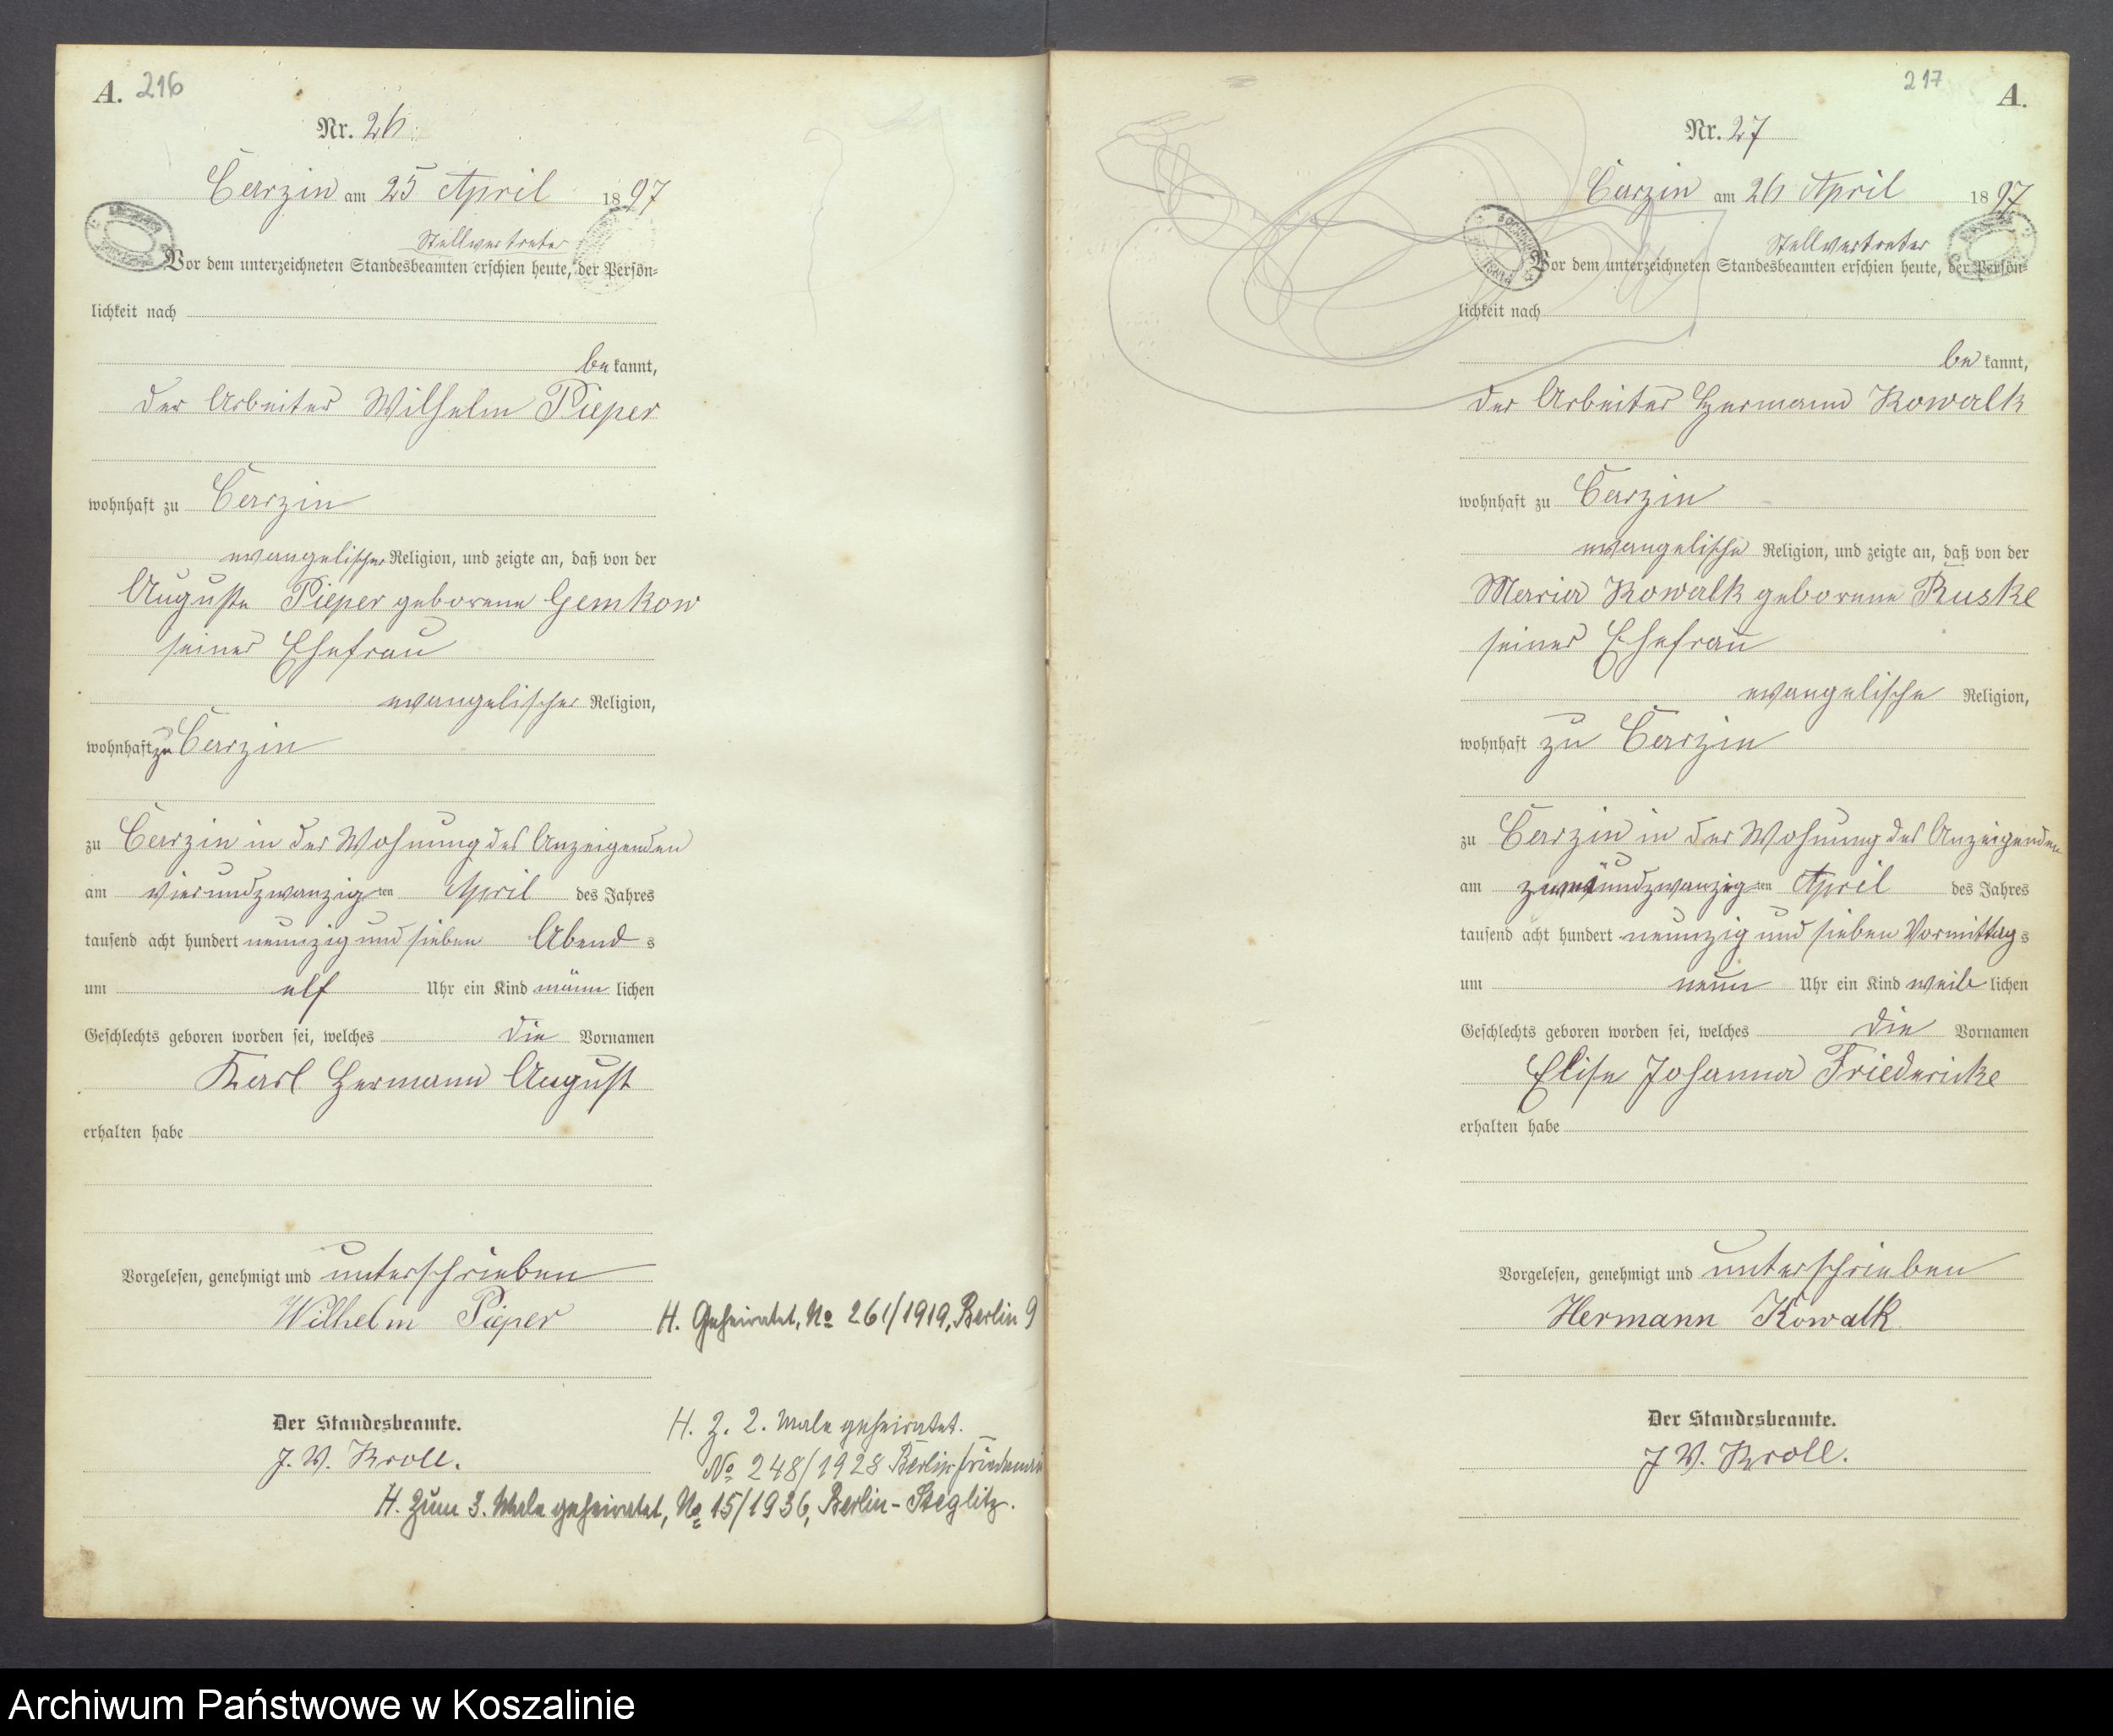 A. 216
Nr. 26
Carzin am 25 April 1897
Stellvertreter
Vor dem unterzeichneten Standesbeamten erschien heute, der Persön=
lichkeit nach
be kannt,
der Arbeiter Wilhelm Pieper
wohnhaft zu Carzin
evangelischer Religion, und zeigte an, daß von der
Auguste Pieper geborene Gemkow
seiner Ehefrau
evangelischer Religion,
wohnhaft zu Carzin
zu Carzin in der Wohnung des Anzeigenden
am vierundzwanzig ten April des Jahres
tausend acht hundert neunzig und sieben Abend s
um elf Uhr ein Kind männ lichen
Geschlechts geboren worden sei, welches die Vornamen
Karl Hermann August
erhalten habe
Vorgelesen, genehmigt und unterschrieben
Wilhelm Pieper
H. Geheiratet, No 261/1919, Berlin 9
Der Standesbeamte.
J. W. Kroll.
H. z. 2. Male geheiratet.
No 248/1928 Berlin-Friedenau
H. Zum 3. Male geheiratet, No 15/1936, Berlin-Steglitz.
217 A.
Nr. 27
Carzin am 26 April 1897
Stellvertreter
Vor dem unterzeichneten Standesbeamten erschien heute, der Persön=
lichkeit nach
be kannt,
der Arbeiter Hermann Kowalk
wohnhaft zu Carzin
evangelische Religion, und zeigte an, daß von der
Maria Kowalk geborene Ruske
seiner Ehefrau
evangelische Religion,
wohnhaft zu Carzin
zu Carzin in der Wohnung des Anzeigenden
am zweiundzwanzig ten April des Jahres
tausend acht hundert neunzig und sieben Vormittag s
um neun Uhr ein Kind weib lichen
Geschlechts geboren worden sei, welches die Vornamen
Elise Johanna Friedericke
erhalten habe
Vorgelesen, genehmigt und unterschrieben
Hermann Kowalk
Der Standesbeamte.
J W. Kroll.
Archiwum Państwowe w Koszalinie